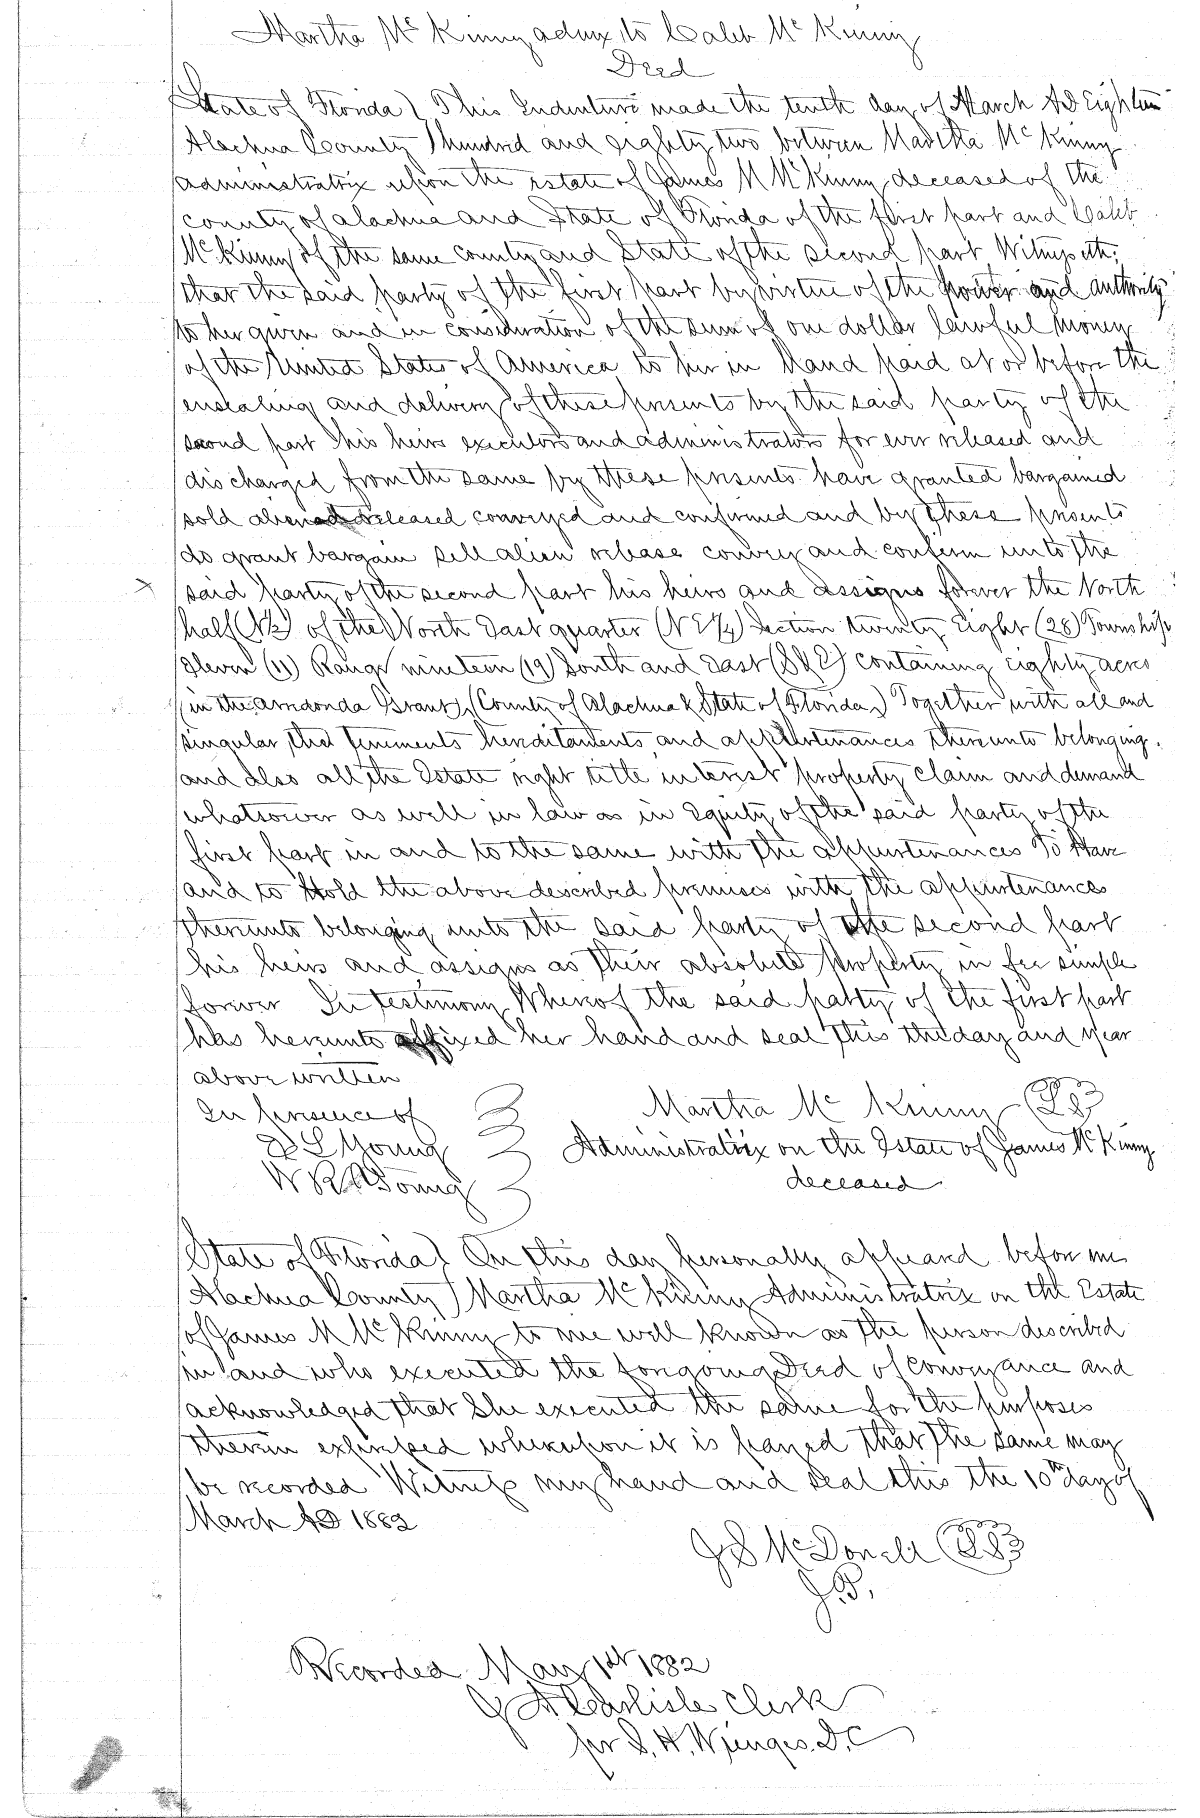 Martha Mc Kinny admx to Caleb Mc Kinny
Deed
State of Florida } This Indenture made the tenth day of March AD Eighteen
Alachua County } hundred and eighty two between Martha Mc Kinny
administratrix upon the estate of James M McKinny deceased of the
county of alachua and State of Florida of the first part and Caleb
McKinny of the same county and State of the second part Witnesseth;
that the said party of the first part by virtue of the power and authority
to her given and in consideration of the sum of one dollar lawful money
of the United States of America to her in hand paid at or before the
ensealing and delivery of these presents by the said party of the
second part his heirs executors and administrators for ever released and
discharged from the same by these presents have granted bargained
sold aliened released conveyed and confirmed and by these presents
do grant bargain sell alien release convey and confirm unto the
said party of the second part his heirs and assigns forever the North
half (N½) of the North East quarter (N E ¼) Section twenty Eight (28) Township
Eleven (11) Range nineteen (19) South and East (S & E) containing eighty acres
(in the arredonda Grant), (County of Alachua & State of Florida) Together with all and
singular the tenements hereditaments and appurtenances thereunto belonging.
and also all the Estate right title interest property claim and demand
whatsoever as well in law as in Equity of the said party of the
first part in and to the same with the appurtenances To Have
and to Hold the above described premises with the appurtenances
thereunto belonging unto the said party of the second part
his heirs and assigns as their absolute property in fee simple
forever In testimony Whereof the said patty of the first part
has hereunto affixed her hand and seal this the day and year
above written
In presence of Martha Mc Kinny (LS)
D L Young Administratrix on the Estate of James McKinny
W R Young deceased
State of Florida } On this day personally appeard before me
Alachua County } Martha McKinny Administratrix on the Estate
of James M McKinny to me well known as the person described
in and who executed the forgoing Deed of Conveyance and
acknowledged that She executed the same for the purposes
therein expressed whereupon it is payed that the same may
be recorded Witness my hand and seal this the 10th day of
March AD 1882
J S McDonell (LS)
J.P.
Recorded May 1st 1882
J A Carlisle Clerk
per S. H. Wienges. D.C